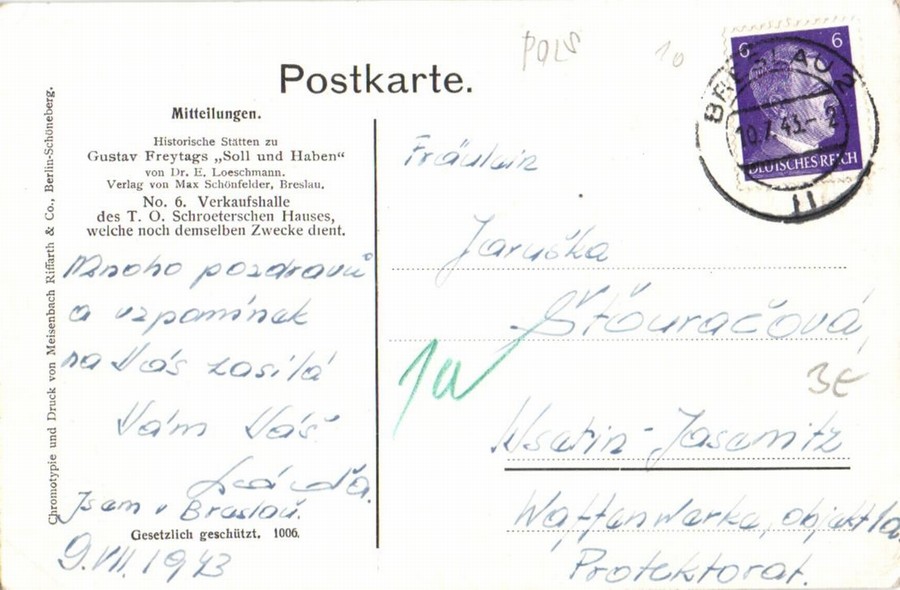 Postkarte.
Mitteilungen.
Historische Stätten zu
Gustav Freytags „Soll und Haben“
von Dr. E. Loeschmann.
Verlag von Max Schönfelder, Breslau.
No. 6. Verkaufshalle
des T. O. Schroeterschen Hauses,
welche noch demselben Zwecke dient.
Mnoho pozdravů
a vzpomínek
na Vás zasílá
Vám Váš
Jsem v Breslau.
9.VII.1943
Gesetzlich geschützt. 1006.
Chromotypie und Druck von Meisenbach Riffarth & Co., Berlin-Schöneberg.
POLS
10
6 6
DEUTSCHES REICH
BRESLAU 2
10.7.43.-2
11
Fräulein
Jaruška
Šťouračová
1a
3E
Wsetin-Jasenitz
Waffenwerke, objekt 1a
Protektorat.